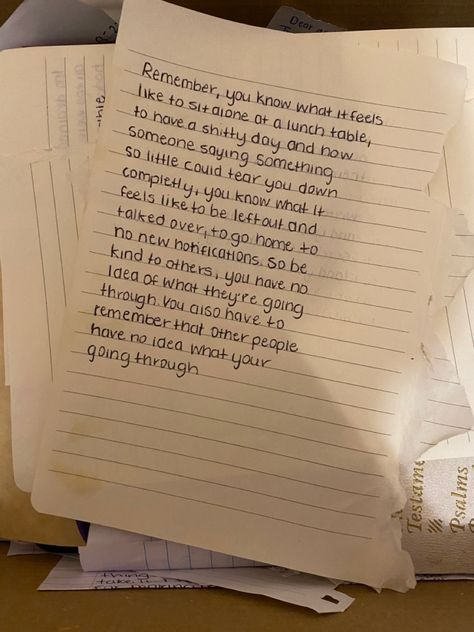 Dear
Remember, you know what it feels
like to sit alone at a lunch table,
to have a shitty day and how
someone saying something
so little could tear you down
completly, you know what it
feels like to be left out and
talked over, to go home to
no new notifications. So be
kind to others, you have no
idea of what they're going
through. You also have to
remember that other people
have no idea what your
going through
Testame
Psalms
thing